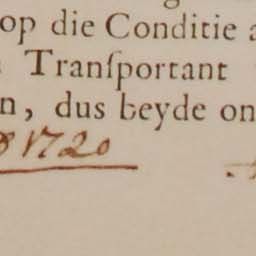 op die Conditie a
Tranſportant
n, dus beyde on
1720